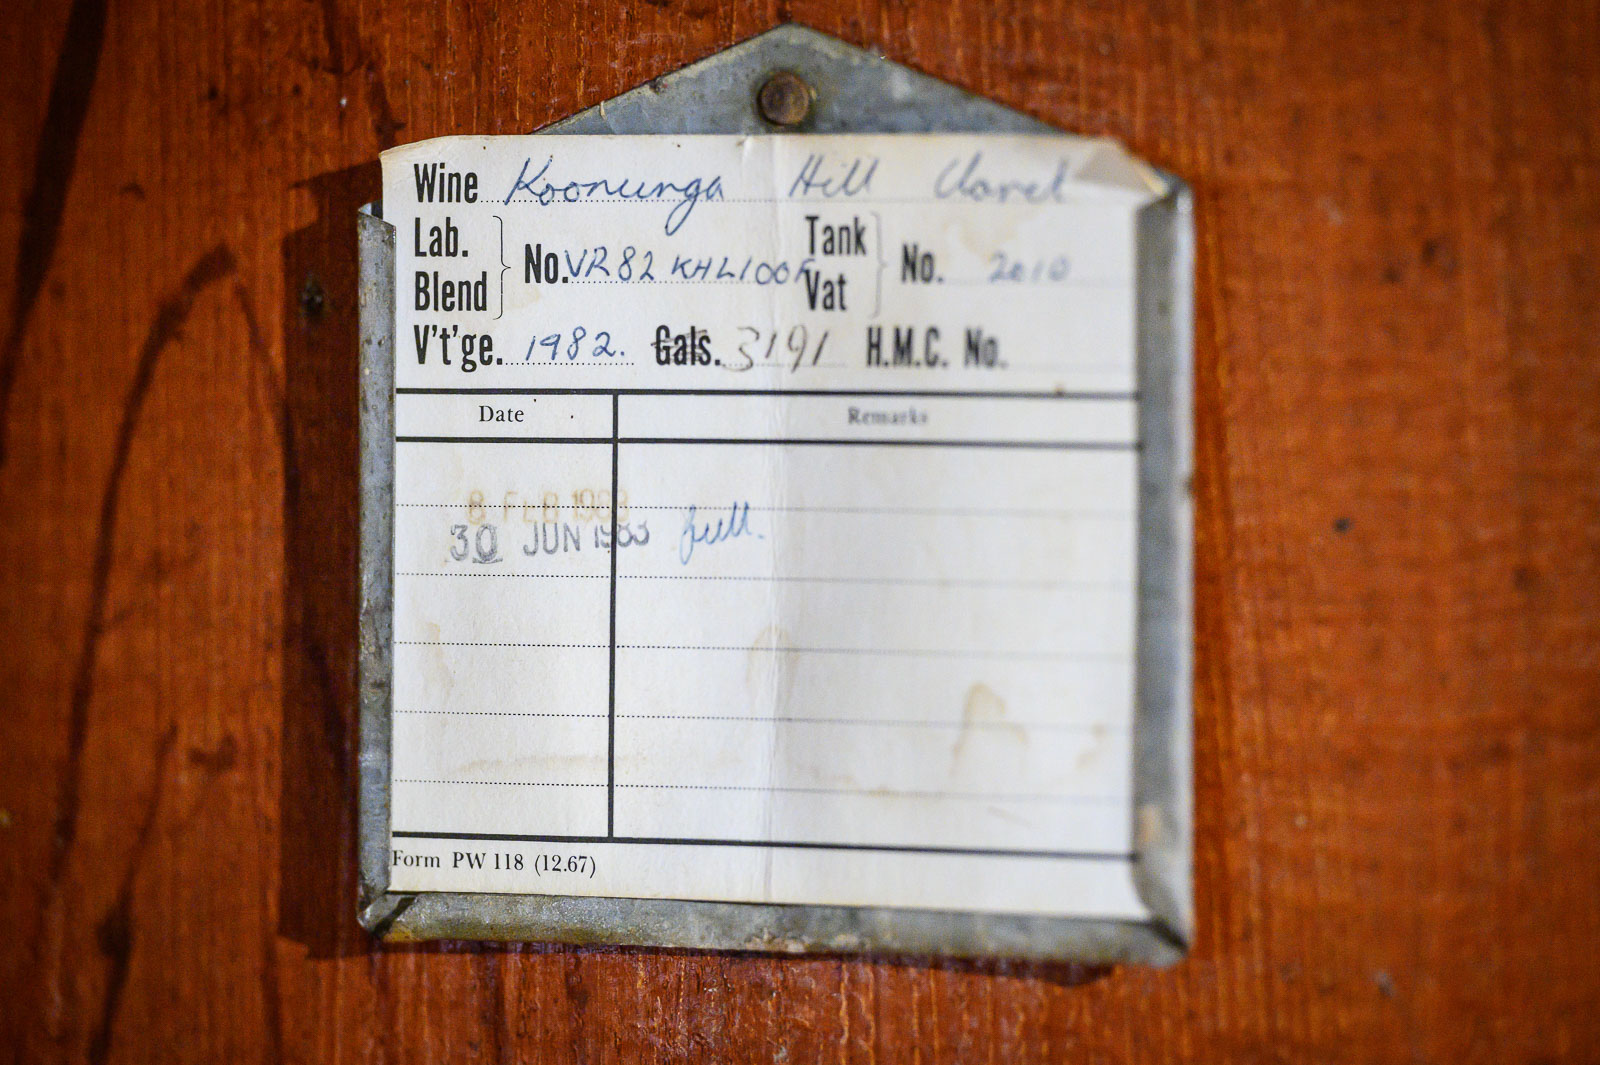 Wine Koonunga Hill Claret
Lab. Blend } No. VR82 KHL100F Tank Vat } No. 2010
V't'ge. 1982. Gals. 3191 H.M.C. No.
Date Remarks
8 FEB 1983
30 JUN 1983 full.
Form PW 118 (12.67)